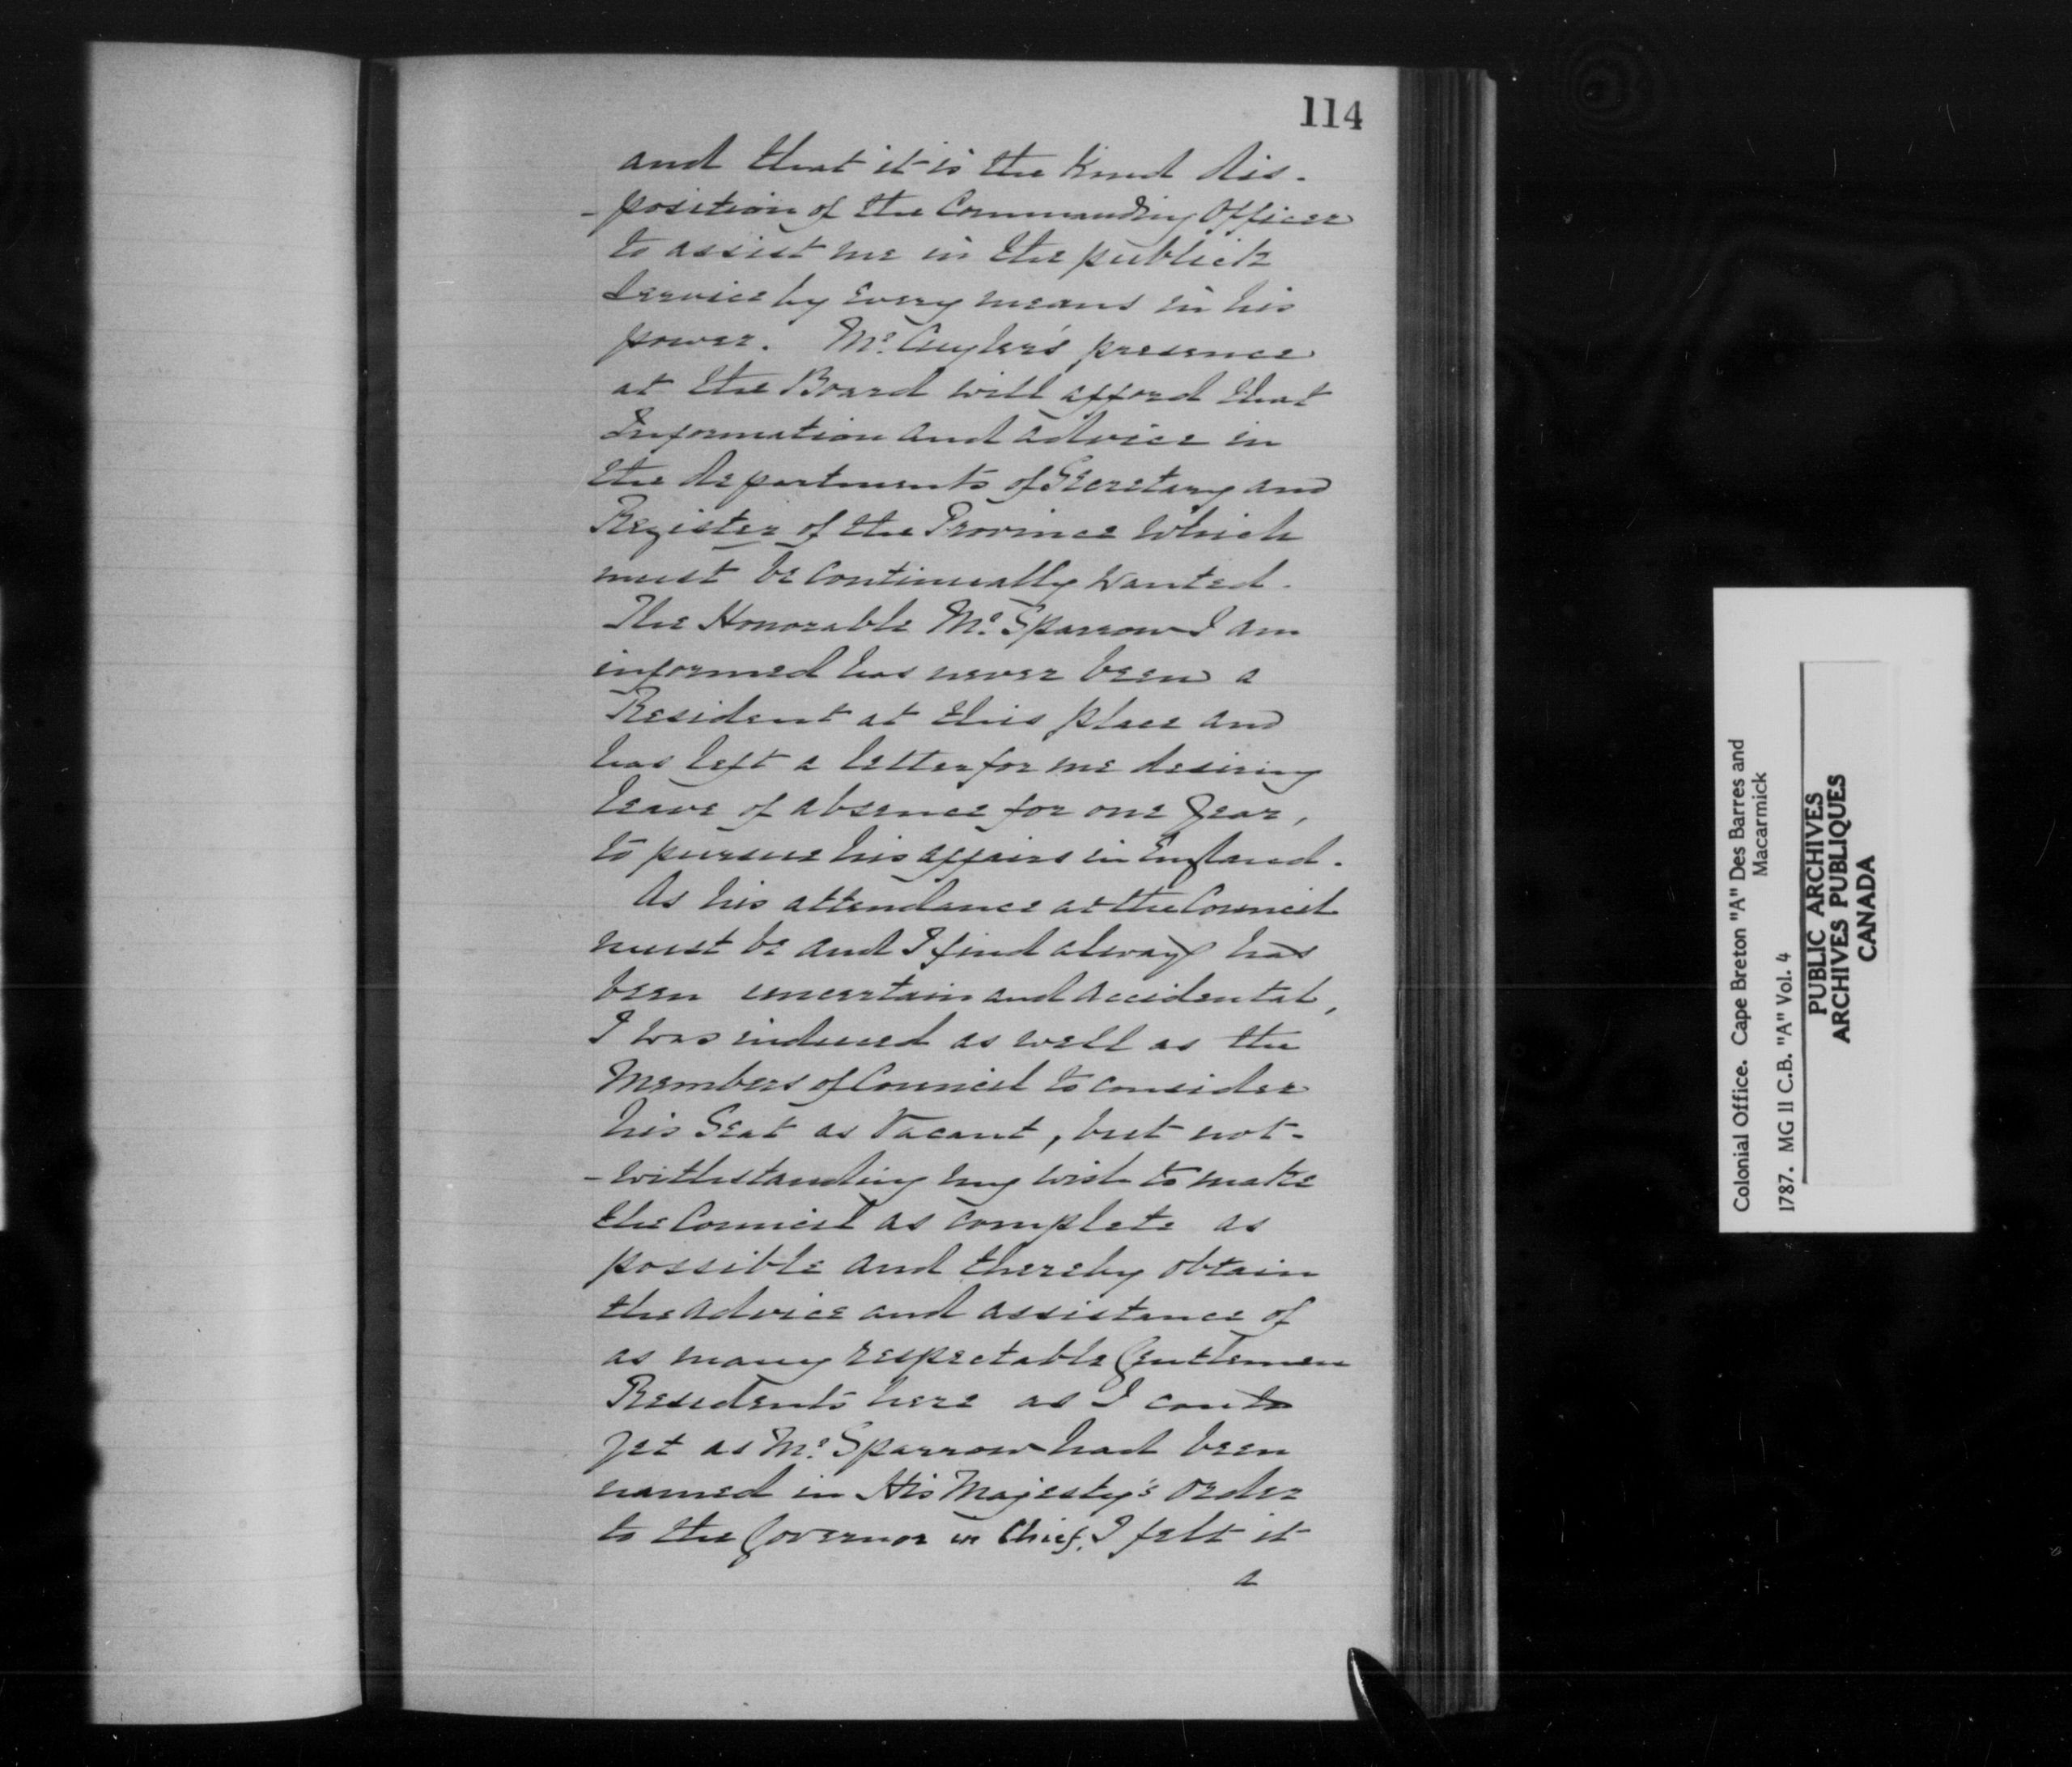 114
and that it is the kind dis-
-position of the Commanding Officer
to assist me in the publick
Service by every means in his
power. Mr. Cuyler's presence
at the Board will afford that
Information and advice in
the departments of Secretary and
Register of the Province which
must be continually wanted.
The Honorable Mr. Sparrow I am
informed has never been a
Resident at this place and
has left a letter for me desiring
leave of absence for one year,
to pursue his affairs in England.
As his attendance at the Council
must be and I find always has
been uncertain and accidental,
I was induced as well as the
Members of Council to consider
his Seat as Vacant, but not-
-withstanding my wish to make
the Council as complete as
possible and thereby obtain
the advice and assistance of
as many respectable Gentlemen
Residents here as I could
yet as Mr. Sparrow had been
named in His Majesty's order
to the Governor in Chief. I felt it
a
Colonial Office. Cape Breton "A" Des Barres and
Macarmick
1787. MG 11 C.B. "A" Vol. 4
PUBLIC ARCHIVES
ARCHIVES PUBLIQUES
CANADA